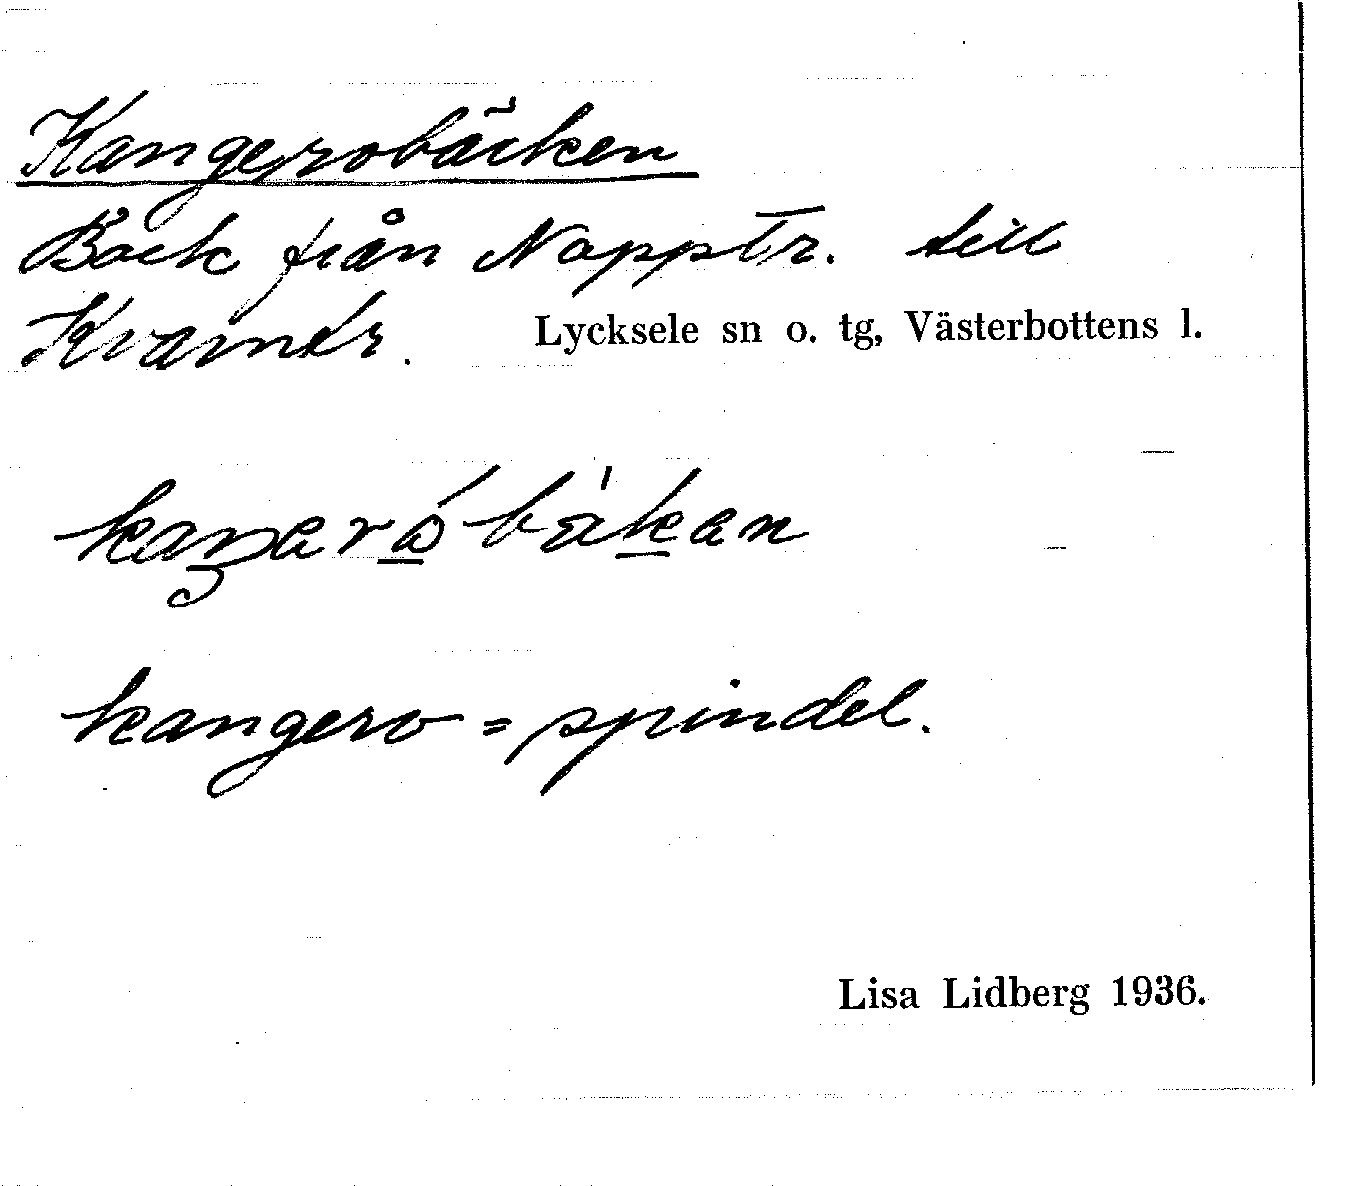 Kangerobäcken
Bäck från Napptr. till
Lycksele sn o. tg, Västerbottens l.
kangero = spindel.
Lisa Lidberg 1936.